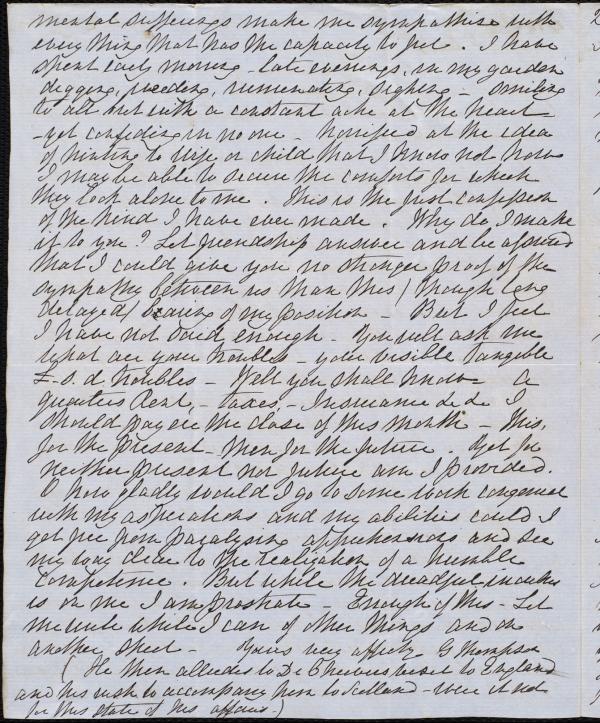 mental sufferings make me sympathise with
every thing that has the capacity to feel. I have
spent early morning - late evenings, in my garden
digging, weeding, ruminating, sighing - smiling
to all but with a constant ache at the heart -
- yet confiding in no one - horrified at the idea
of hinting to wife or child that I know not how
I may be able to secure the comforts for which
they look alone to me. This is the first confession
of the kind I have ever made. Why do I make
it to you? Let friendship answer and be assured
that I could give you no stronger proof of the
sympathy between us than this (though long
delayed) baring of my position - But I feel
I have not said enough - You will ask me
what are your troubles - your visible tangible
£. s. d troubles - Well you shall know - a
quarters Rent, - taxes, - Insurance &c &c I
should pay ere the close of this month - This,
for the present - then for the future. Yet for
neither present nor future am I provided.
O how gladly would I go to some work congenial
with my aspirations and my abilities could I
get free from paralysing apprehensions and see
my way clear to the realization of a humble
competence. But while the dreadful incubus
is on me I am prostrate - Enough of this - Let
me write while I can of other things and on
another sheet - Yours very affecty. G Thompson
(He then alludes to Dr visit to England
and his wish to accompany him to Scotland - were it not
for this state of his affairs -)